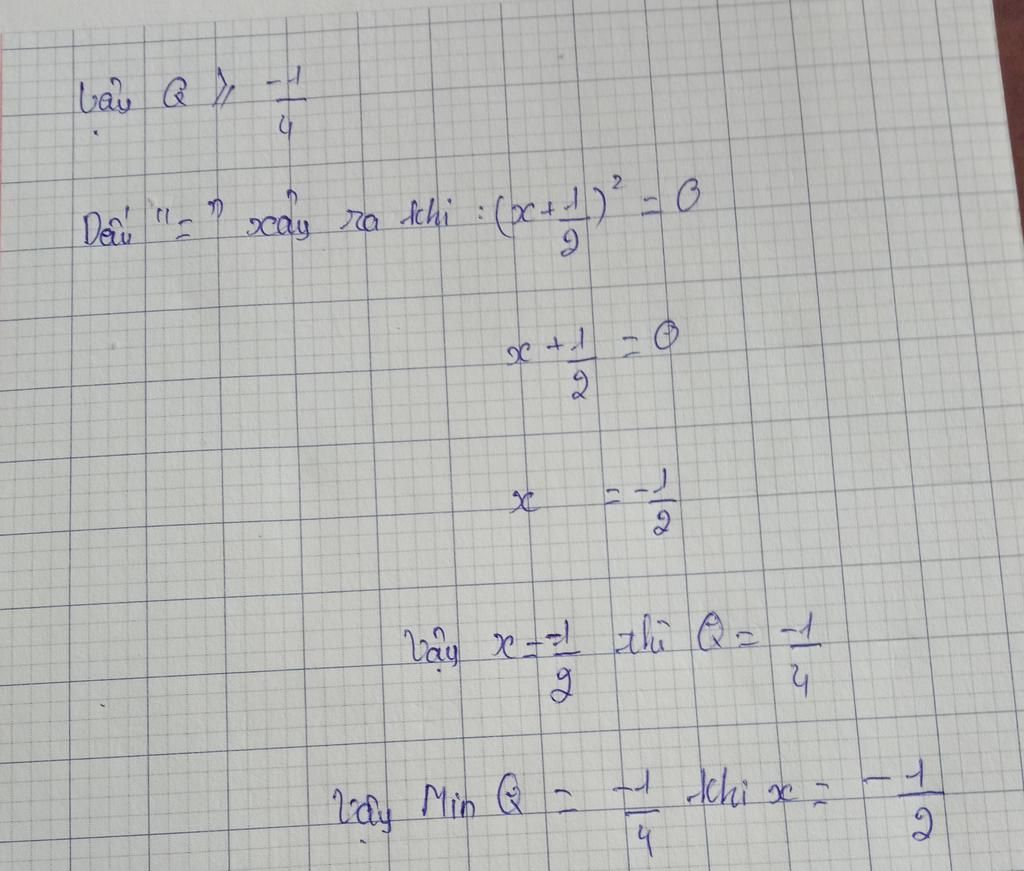 Vậy Q ⩾ -1/4
Dấu "=" xảy ra khi : (x + 1/2)² = 0
x + 1/2 = 0
x = -1/2
Vậy x = -1/2 thì Q = -1/4
Vậy Min Q = -1/4 khi x = -1/2